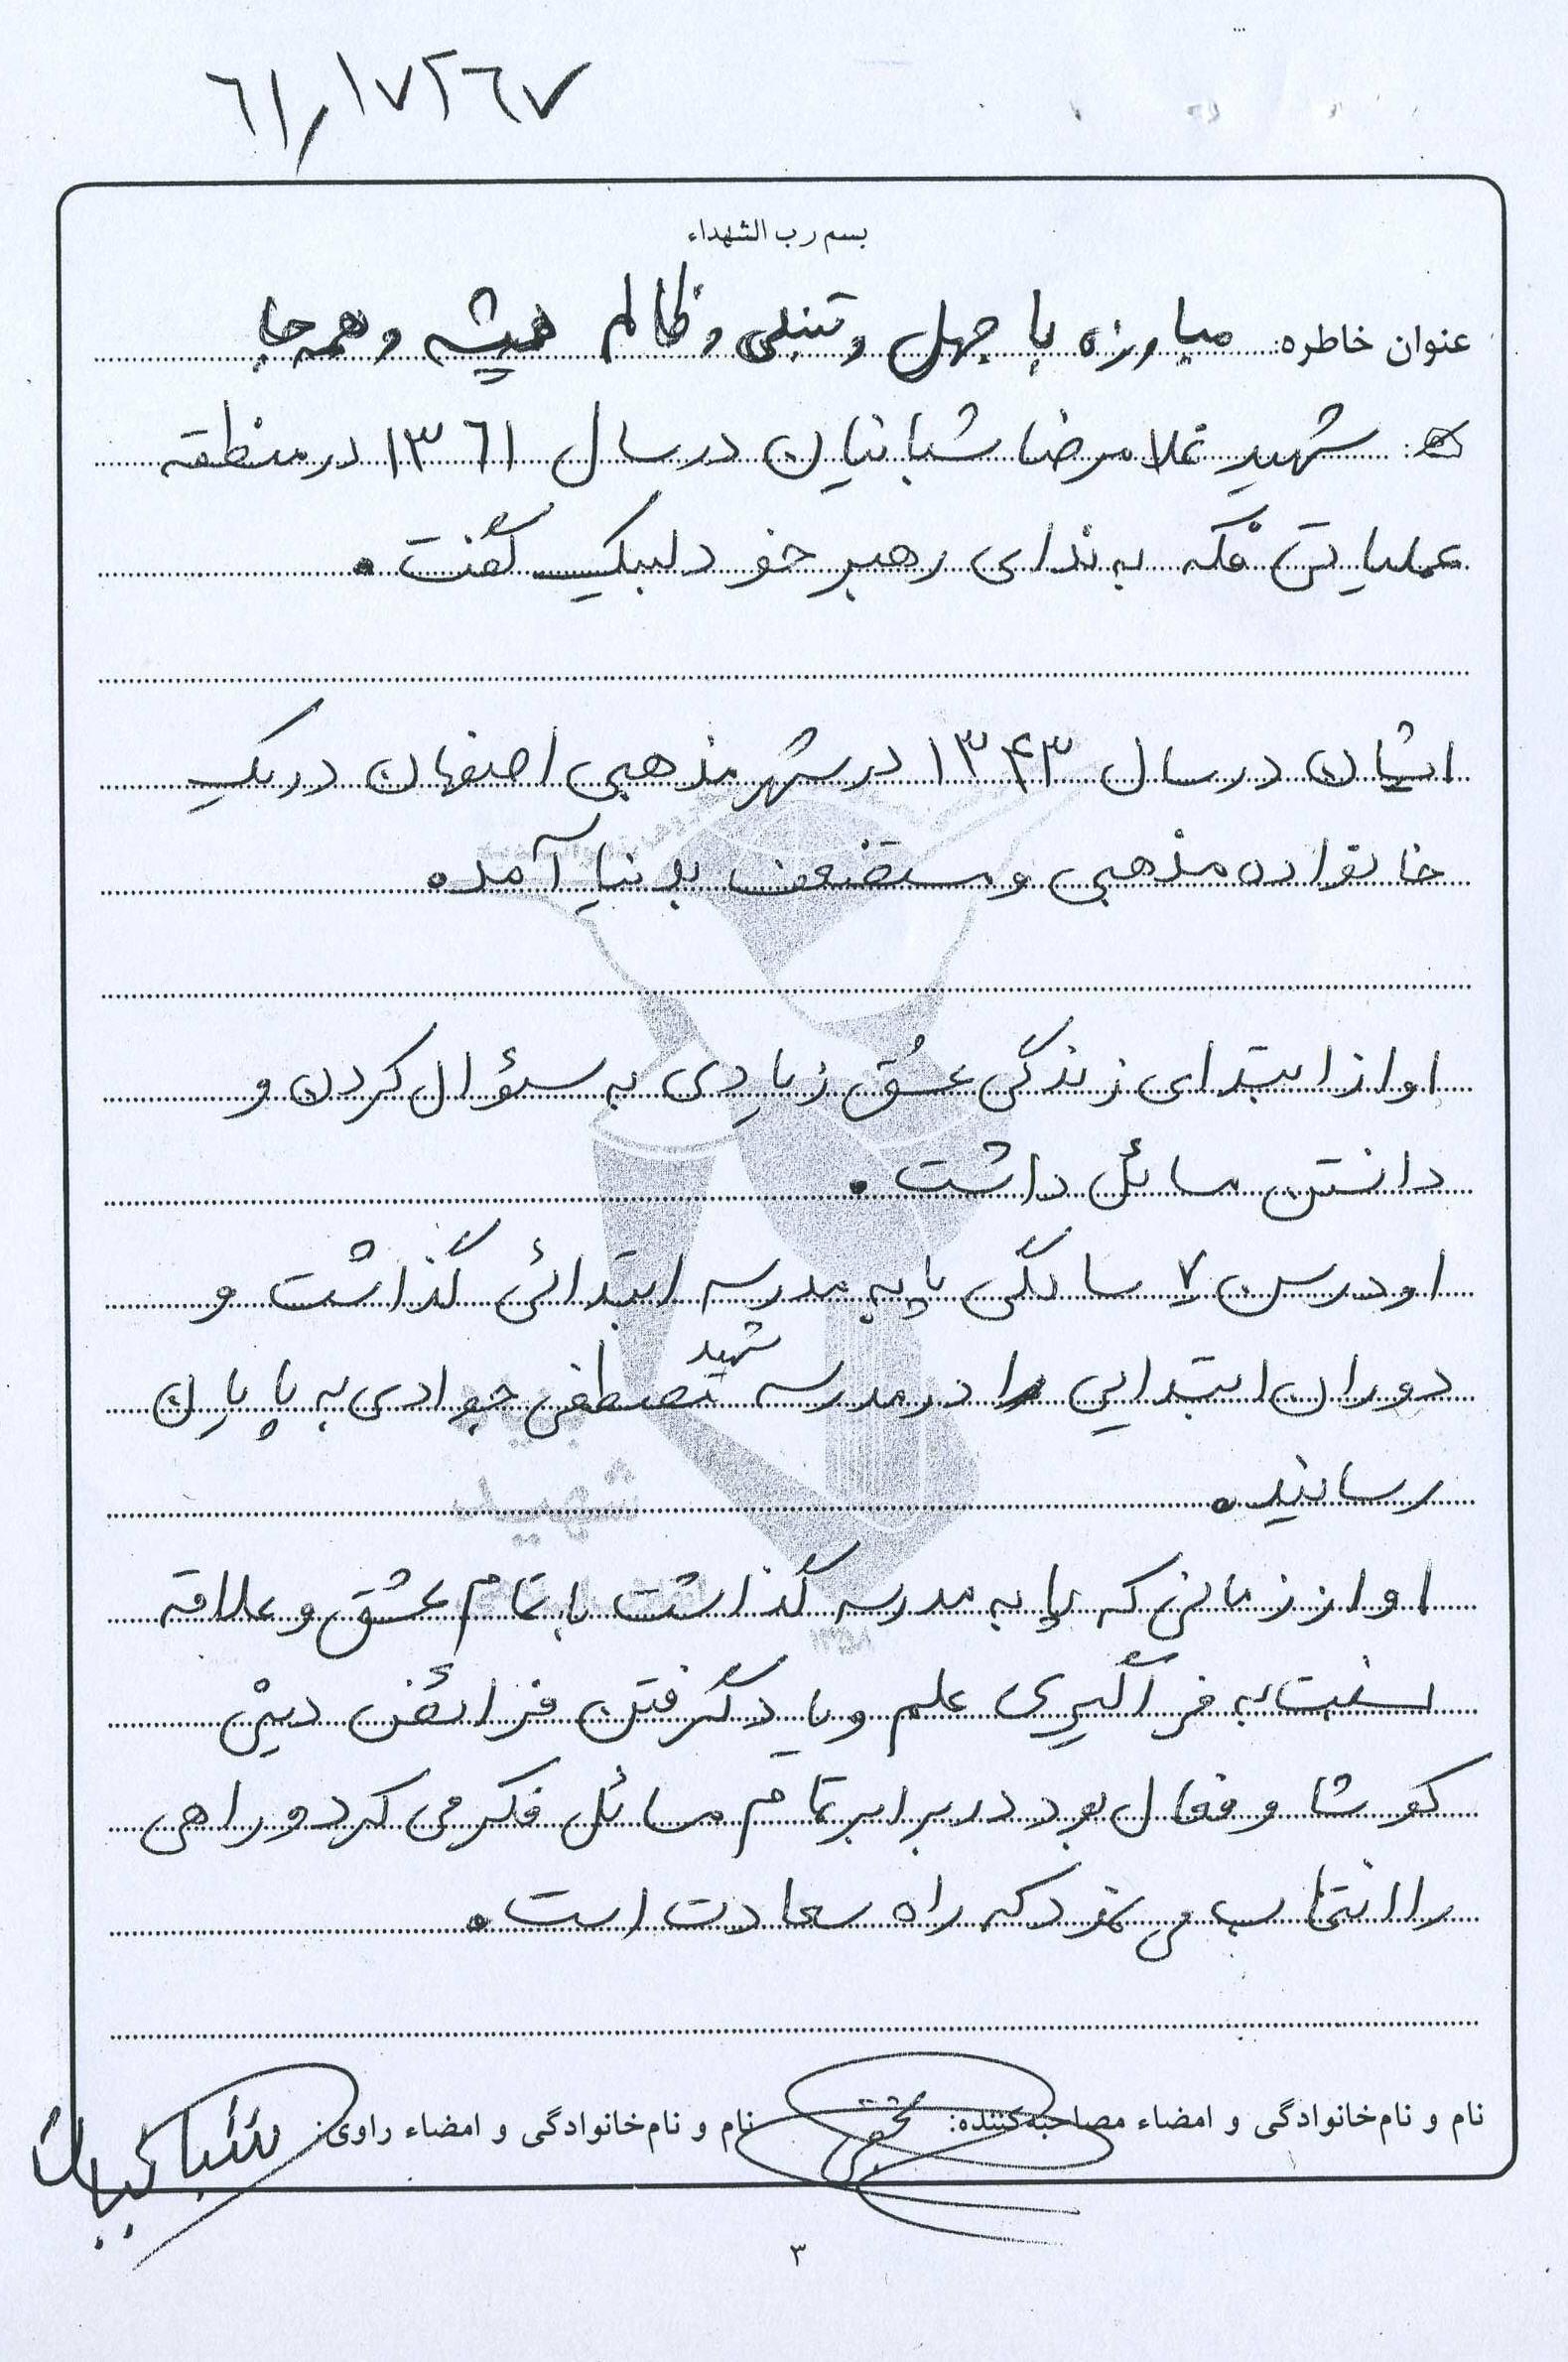 ٦١/١٧٢٦٧
بسم رب الشهداء
عنوان خاطره: مبارزه با جهل و تنبلی و ظالم همیشه و همه جا
شهید غلامرضا شبانیان در سال ١٣٦١ در منطقه
عملیاتی فکه به ندای رهبر خود لبیک گفت.
ایشان در سال ١٣۴٣ در شهر مذهبی اصفهان در یک
خانواده مذهبی و مستضعف بدنیا آمد.
او از ابتدای زندگی عشق زیادی به سؤال کردن و
دانستن مسائل داشت.
او در سن ٧ سالگی پا به مدرسه ابتدائی گذاشت و
دوران ابتدایی را در مدرسه شهید مصطفی جوادی به پایان
رسانید.
او از زمانی که پا به مدرسه گذاشت با تمام عشق و علاقه
نسبت به فراگیری علم و یادگرفتن فرائض دینی
کوشا و فعال بود در برابر تمام مسائل فکر می کرد و راهی
را انتخاب می نمود که راه سعادت است.
نام و نام‌خانوادگی و امضاء مصاحبه‌کننده: نام و نام‌خانوادگی و امضاء راوی: شبانیان
٣
شهید